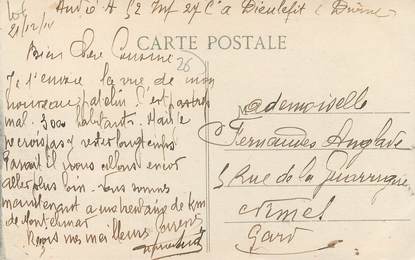 André A 52 Inf 27 Cie à Dieulefit (Drôme)
21/12/14
CARTE POSTALE
26
Bien chère Cousine
Je t'envoie la vue de mon
nouveau patelin c'est pas très
mal. 3000 habitants. Mais je
ne crois pas y rester longtemps
Parait il nous allons encor
aller plus loin. Nous sommes
maintenant a une trentaine de km
de Montelimar
Reçois mes meilleurs
Mademoiselle
Fernande Anglade
5 Rue de la
Nimes
Gard